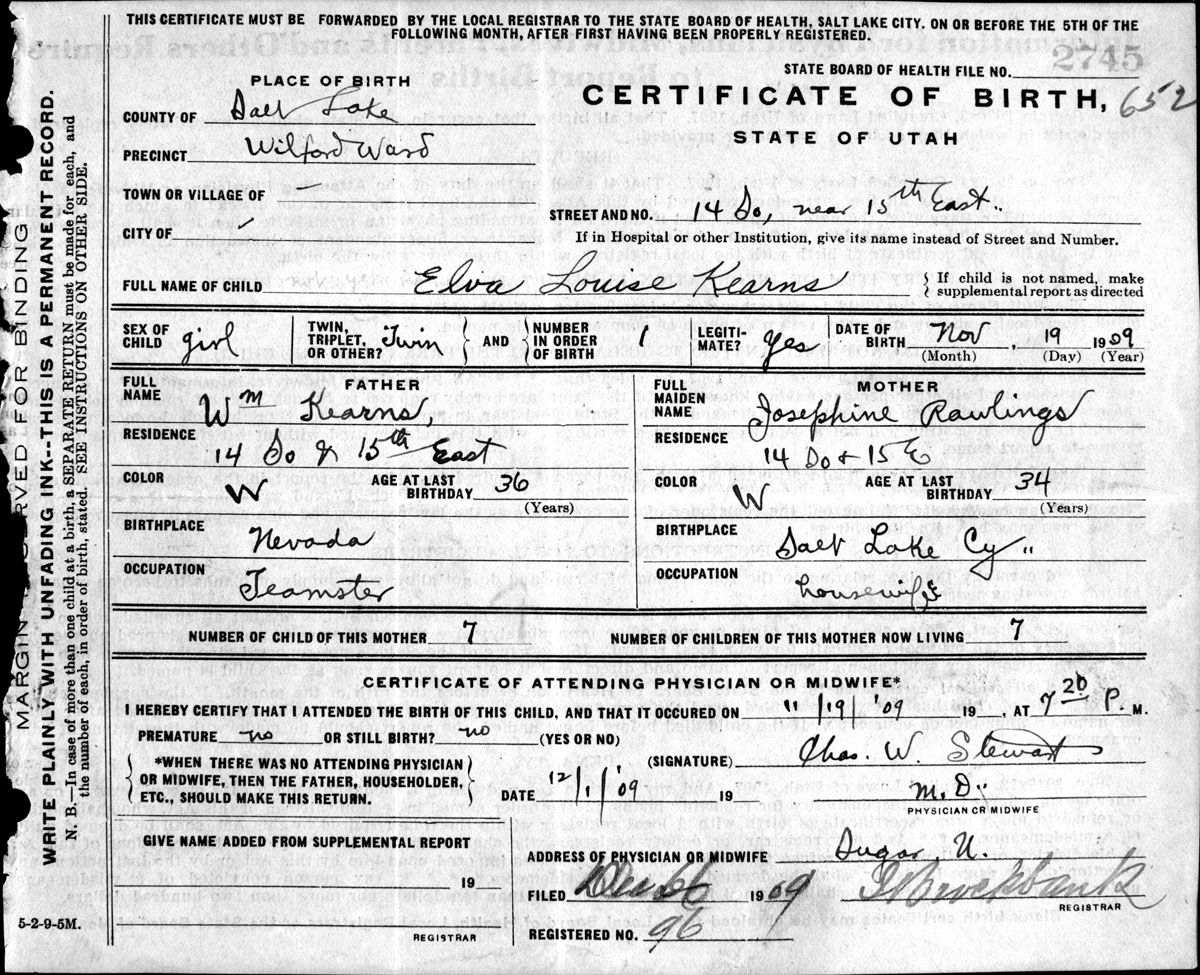 THIS CERTIFICATE MUST BE FORWARDED BY THE LOCAL REGISTRAR TO THE STATE BOARD OF HEALTH, SALT LAKE CITY. ON OR BEFORE THE 5TH OF THE
FOLLOWING MONTH, AFTER FIRST HAVING BEEN PROPERLY REGISTERED.
STATE BOARD OF HEALTH FILE NO. 2745
PLACE OF BIRTH
CERTIFICATE OF BIRTH, 652
STATE OF UTAH
COUNTY OF Salt Lake
PRECINCT Wilford Ward
TOWN OR VILLAGE OF
STREET AND NO. 14 So, near 15th East.
CITY OF
If in Hospital or other Institution, give its name instead of Street and Number.
FULL NAME OF CHILD Elva Louise Kearns { If child is not named, make
supplemental report as directed
SEX OF CHILD girl TWIN, TRIPLET, OR OTHER? Twin } AND { NUMBER IN ORDER OF BIRTH 1 LEGITI-MATE? yes DATE OF BIRTH Nov, 19 1909
(Month) (Day) (Year)
FATHER
FULL NAME Wm Kearns,
RESIDENCE
14 So & 15th East
COLOR W AGE AT LAST BIRTHDAY 36
(Years)
BIRTHPLACE
Nevada
OCCUPATION
Teamster
MOTHER
FULL MAIDEN NAME Josephine Rawlings
RESIDENCE
14 So + 15 E
COLOR W AGE AT LAST BIRTHDAY 34
(Years)
BIRTHPLACE
Salt Lake Cy "
OCCUPATION
housewife
NUMBER OF CHILD OF THIS MOTHER 7 NUMBER OF CHILDREN OF THIS MOTHER NOW LIVING 7
CERTIFICATE OF ATTENDING PHYSICIAN OR MIDWIFE*
I HEREBY CERTIFY THAT I ATTENDED THE BIRTH OF THIS CHILD, AND THAT IT OCCURED ON 11/19/'09 19 , AT 7 20 P. M.
PREMATURE no OR STILL BIRTH? no (YES OR NO)
*WHEN THERE WAS NO ATTENDING PHYSICIAN
OR MIDWIFE, THEN THE FATHER, HOUSEHOLDER,
ETC., SHOULD MAKE THIS RETURN.
(SIGNATURE) Chas. W. Stewart
DATE 12/1/'09 19 M.D.
PHYSICIAN OR MIDWIFE
GIVE NAME ADDED FROM SUPPLEMENTAL REPORT
19
REGISTRAR
ADDRESS OF PHYSICIAN OR MIDWIFE Sugar, U.
FILED Dec 6 1909 Brockbank
REGISTRAR
REGISTERED NO. 96
5-2-9-5M.
MARGIN RESERVED FOR BINDING
WRITE PLAINLY WITH UNFADING INK--THIS IS A PERMANENT RECORD.
N. B.--In case of more than one child at a birth, a SEPARATE RETURN must be made for each, and
the number of each, in order of birth, stated. SEE INSTRUCTIONS ON OTHER SIDE.